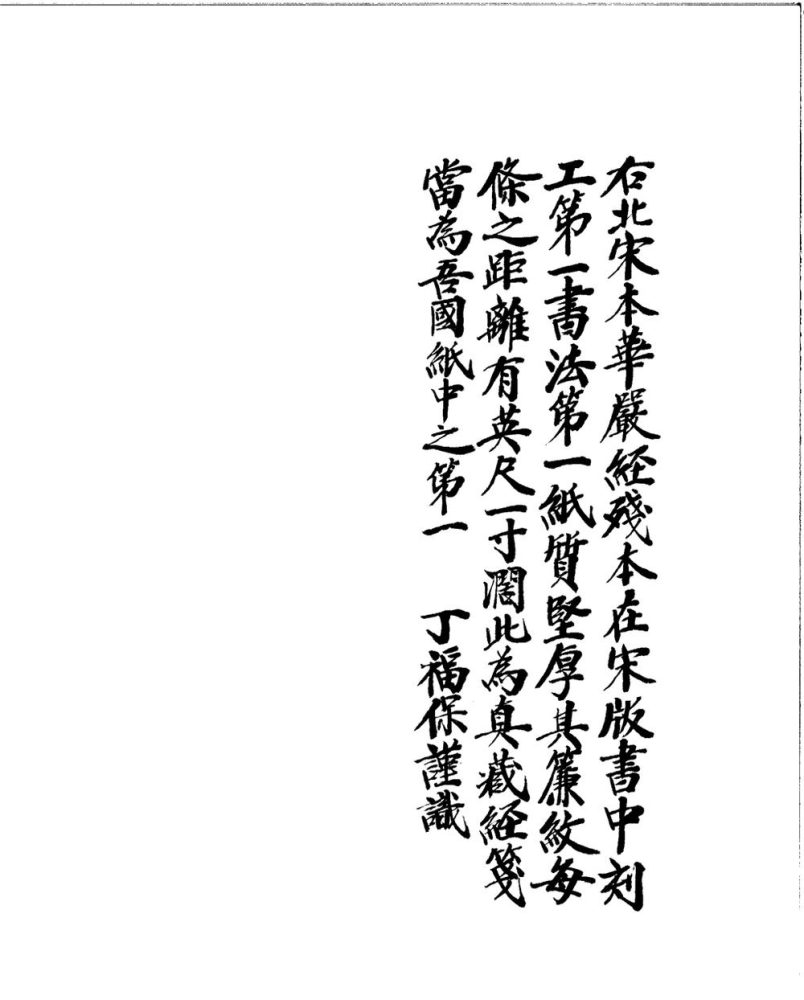 右北宋本華嚴經殘本在宋版書中刻
工第一書法第一紙質堅厚其簾紋每
條之距離有英尺一寸濶此為真藏經箋
當為吾國紙中之第一　丁福保謹識